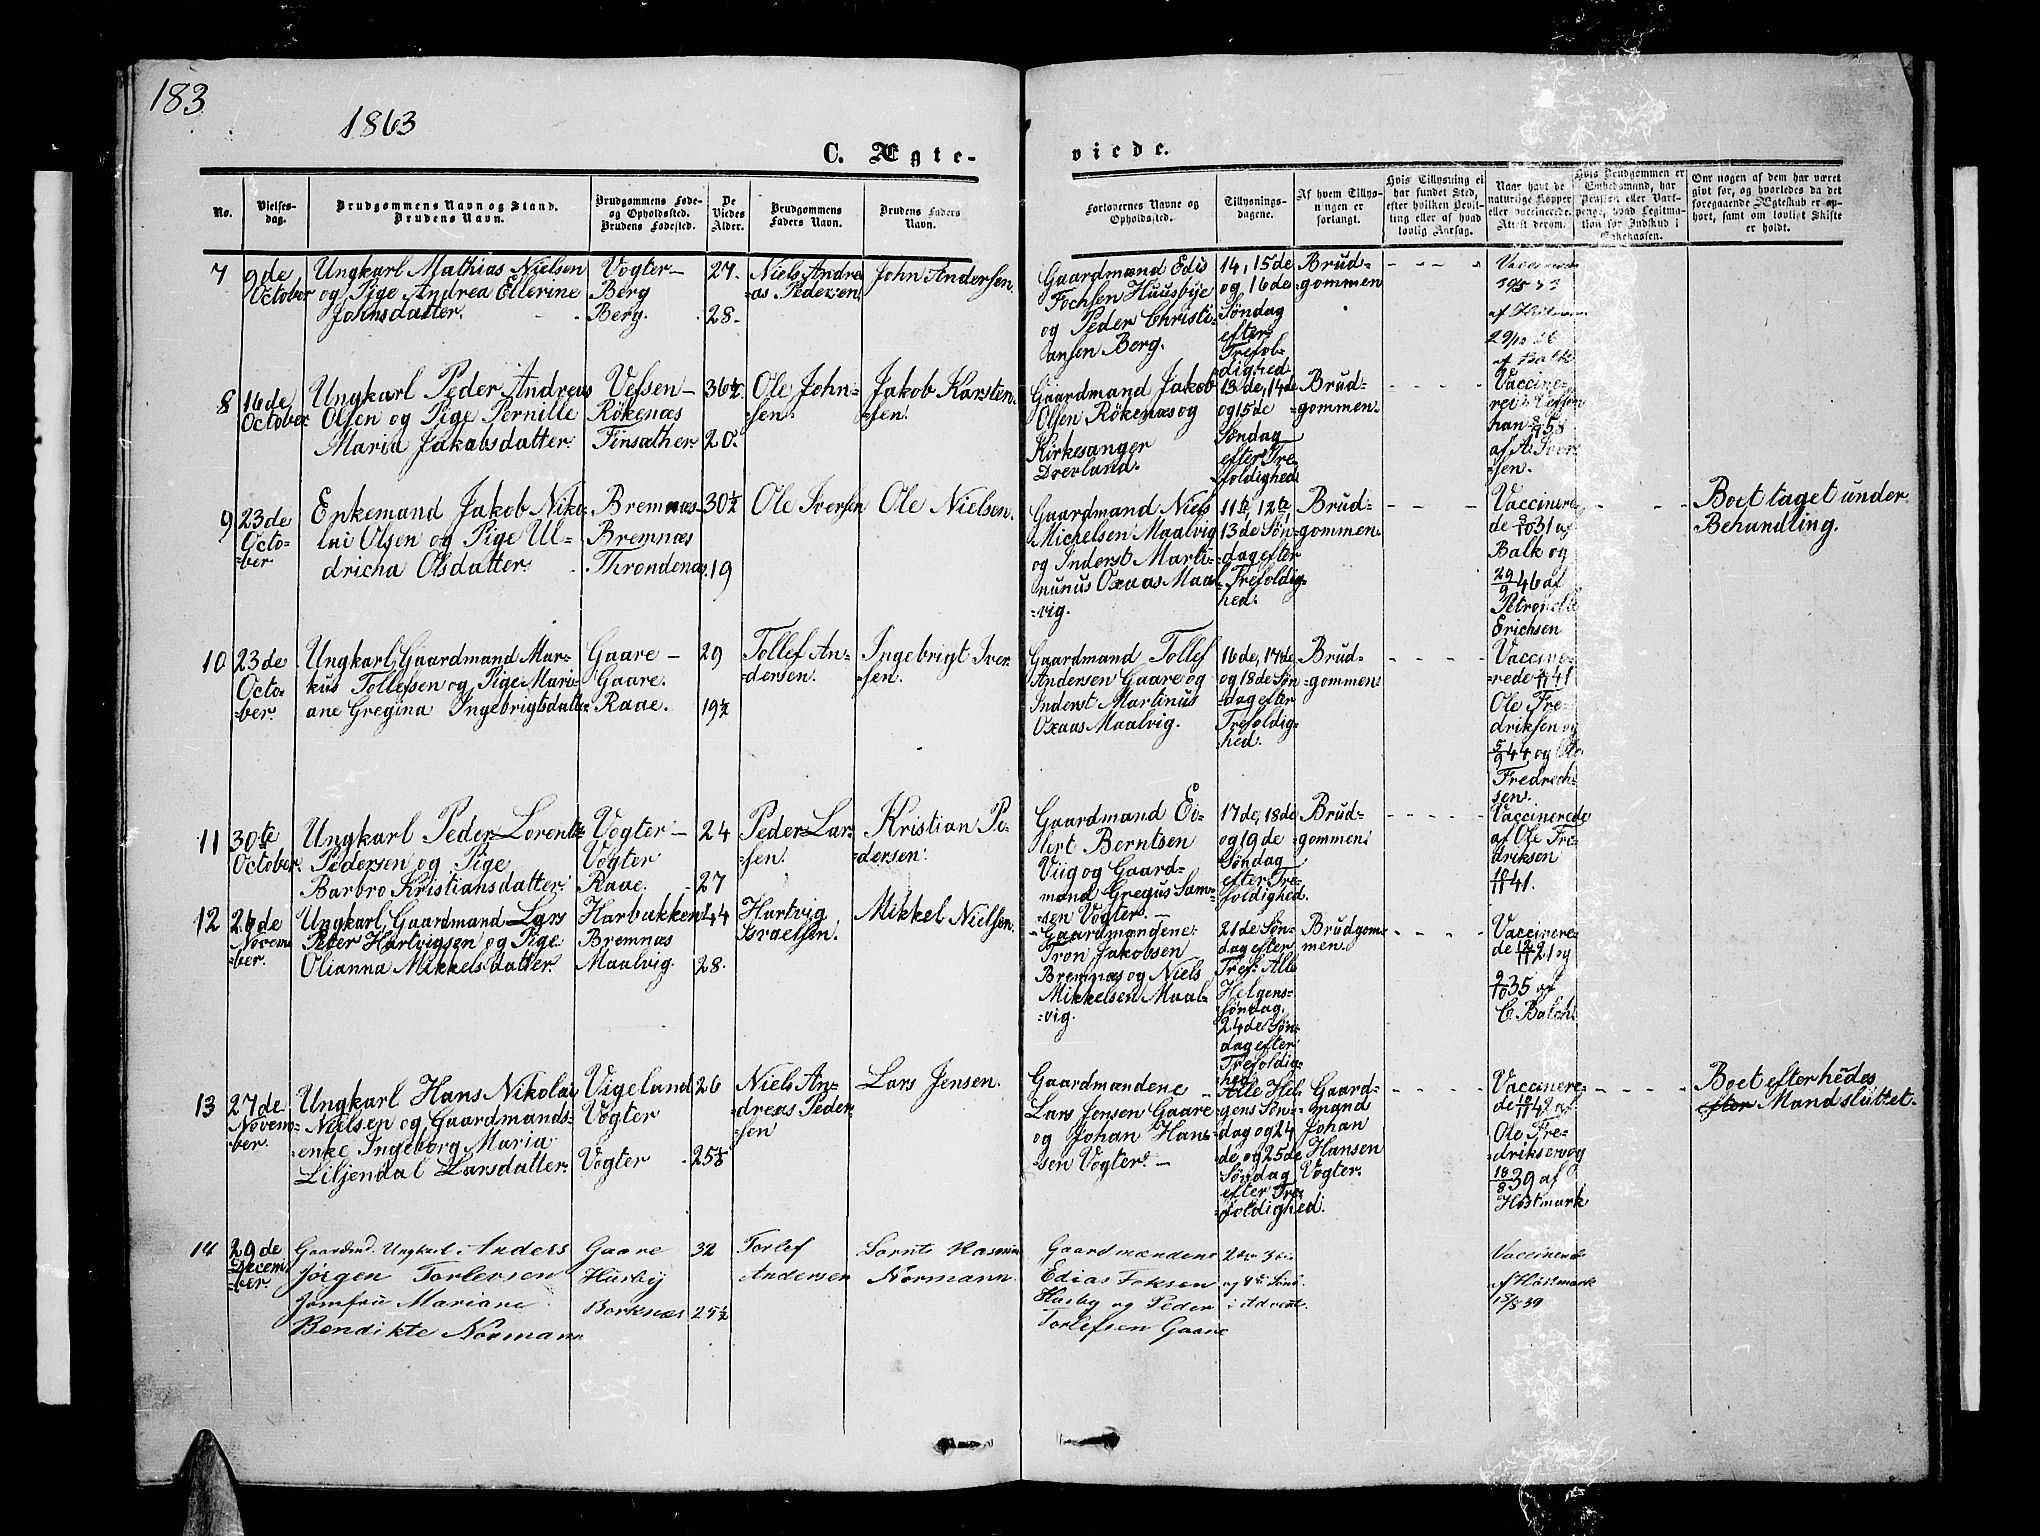 183
1863
C. Ægte-
viede.
No.
Vielses-
dag.
Brudgommens Navn og Stand.
Brudens Navn.
Brudgommens Føde-
og Opholdssted.
Brudens Fødested.
De
Viedes
Alder.
Brudgommens
Faders Navn.
Brudens Faders
Navn.
Forlovernes Navne og
Opholdssted.
Tillysnings-
dagene.
Af hvem Tillys-
ningen er
forlangt.
Hvis Tillysning ei
har fundet Sted,
efter hvilken Bevil-
ling eller af hvad
lovlig Aarsag.
Naar havt de
naturlige Kopper
eller vaccinerede.
Attest derom.
Hvis Brudgommen er
Embedsmand, har
Pension eller Vart-
penge, hvad Legitima-
tion for Indskud i
Enkekassen.
Om nogen af dem har været
gift før, og hvorledes da det
foregaaende Ægteskab er op-
hørt, samt om lovligt Skifte
er holdt.
7
9de
October
Ungkarl Mathias Nielsen
og Pige Andrea Ellerine
Johnsdatter.
Vogter-
Berg
Berg.
27.
28.
Niels Andre
=as Pedersen
John Andersen.
Gaardmand Edis
Fochsen Huusbye
og Peder Christi-
ansen Berg.
14, 15de
og 16de
Søndag
efter
Trefol-
dighed
Brud=
=gommen
af
29/10 36
af Balk
8
16de
October
Ungkarl Peder Andreas
Olsen og Pige Pernille
Maria Jakobsdatter.
Vefsen-
Rökenæs
Finsæther
30½
20.
Ole John=
=sen.
Jakob Karsten.
=sen.
Gaardmand Jakob
Olsen Rökenæs og
Kirkesanger
Drevland.
13de, 14de
og 15de
Søndag
efter Tre=
=foldighed
Brud=
=gommen.
Vaccine-
af A. Iver
sen.
9
23de
Octo-
=ber.
Enkemand Jakob Niko-
lai Olsen og Pige Ul=
dricha Olsdatter.
Bremnæs-
Bremnæs
Throndenæs.
30½
19
Ole Iversen
Ole Nielsen.
Gaardmand Niels
Michelsen Maalvig
og Inderst Marti-
nunus Oxaas Maal
=vig.
11te, 12te
13de Søn=
=dag efter
Trefoldig=
hed.
Brud=
=gommen
Vaccinere
de 9/10 31 af
Balk og
29/9 46 af
Petronelle
Erichsen
Boet taget under
Behandling.
10
23de
Octo-
=ber.
Ungkarl Gaardmand Mar-
kus Tollefsen og Pige Mari-
ane Gregina Ingebrigtsdatte
Gaare-
Gaare.
Raae.
29
19½
Tollef An-
=dersen.
Ingebrigt Iver
=sen.
Gaardmand Tollef
Andersen Gaare og
Inderst Martinus
Oxaas Maalvig.
16de, 17de
og 18de Søn
=dag efter
Trefoldig=
=hed.
Brud=
=gommen
Vaccine=
=rede 41
Ole Fre=
driksen og
5/9 44 og Ole
Fredrech-
sen.
11
30te
October.
Ungkarl Peder Lorents
Pedersen og Pige
Barbro Kristiansdatter
Vogter-
Vogter
Raae.
24
27
Peder Lar=
=sen.
Kristian Pe-
=dersen.
Gaardmand Ei=
=lert Berntsen
Viig og Gaard=
mand Gregus Sam=
=sen Vogter.-
17de, 18de
og 19de
Søndag
efter Tre=
foldighed.
Brud=
=gommen
Vaccinerede
af Ole Fre
driksen
41.
12
26de
Novem
ber.
Ungkarl Gaardmand Lars
Peter Hartvigsen og Pige
Olianna Mikkelsdatter.
Harbakken.
Bremnæs
Maalvig.
44
28.
Hartvig
Israelsen.
Mikkel Nielsen.
Gaardmændene
Tron Jakobsen
Bremnæs og Niels
Mikkelsen Maal=
=vig.
21de Søn-
dag efter
Tref. Alle
Helgens=
=søndag.
24de Søn=
dag efter
Trefoldig=
hed
Brudgom=
men.
Vaccinere=
de 21 og
9/10 35 af
C. Balch
13
27de
Novem=
=ber.
Ungkarl Hans Nikolai
Nielsen og Gaardmands=
enke Ingeborg Maria
Liljendal Larsdatter.
Vigeland
Vogter
Vogter
26
25½
Niels An=
dreas Peder
sen
Lars Jensen.
Gaardmændene
Lars Jensen Gaare
og Johan Han=
=sen Vogter.-
Alle Hel
gens Søn=
dag og 24
de og 25de
Søndag
efter Tre
foldighed.
Gaard=
mand
Johan
Hansen
Vogter.
Vaccinere=
de 42 af
Ole Fre=
driksen og
18/8 39 af
Høstmark
Boet efter hedes
efter Mand sluttet.
14
29de
Decem
ber.
Gaardmd. Ungkarl Anders
Jörgen Torlersen
Jomfru Mariane
Bendikte Normann
Gaare
Husby
Borknæs
32
25½
Torlef
Andersen
Sornts Rasmus
Normann.
Gaardmændene
Edias Foksen
Husby og Peder
Torlefsen Gaare
2den 3die
og 4de Sønd.
i Advent.
Vaccinerede
af Høstmark
18/8 39